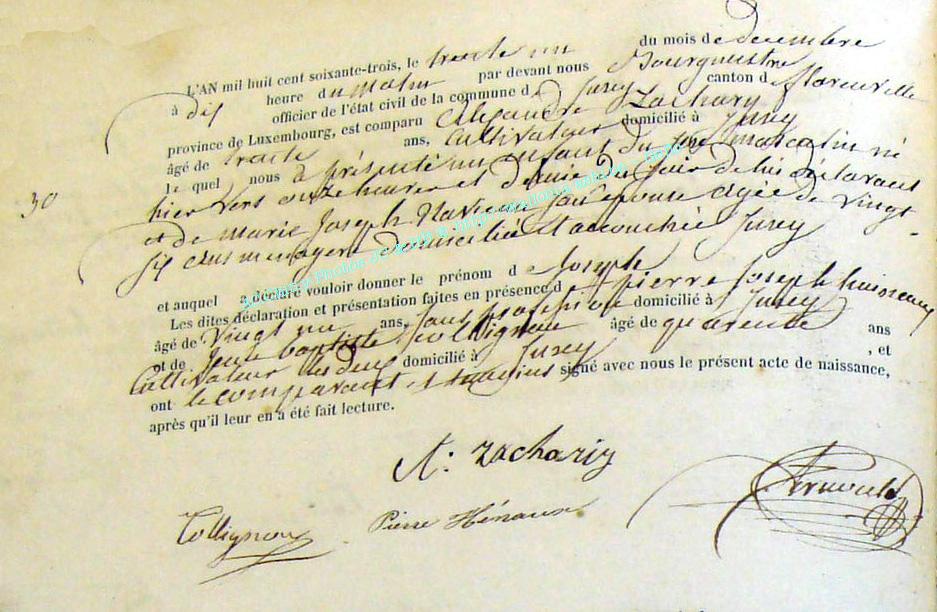 L'AN mil huit cent soixante-trois, le trente un du mois de decembre
à dix heure du matin par devant nous Bourgmestre
officier de l'état civil de la commune d Juzey canton d florenville
province de Luxembourg, est comparu Alexandre Zachary
âgé de trente ans, Cultivateur domicilié à Juzey
le quel nous a présenté un enfant du sexe masculin né
hier vers onze heures et demie du soir de lui déclarant
et de Marie Joseph son épouse agée de vingt
six ans menagere domiciliée et accouchée Juzey
30
et auquel a déclaré vouloir donner le prénom d e Joseph
Les dites déclaration et présentation faites en présence d pierre Joseph
âgé de vingt un ans, sans profession domicilié à Juzey
et de Jean baptiste Collignon âgé de quarante ans
Cultivateur les deux domicilié à Juzey , et
ont le comparant et temoins signé avec nous le présent acte de naissance,
après qu'il leur en a été fait lecture.
A: Zachariy
Collignon Pierre Hénaux